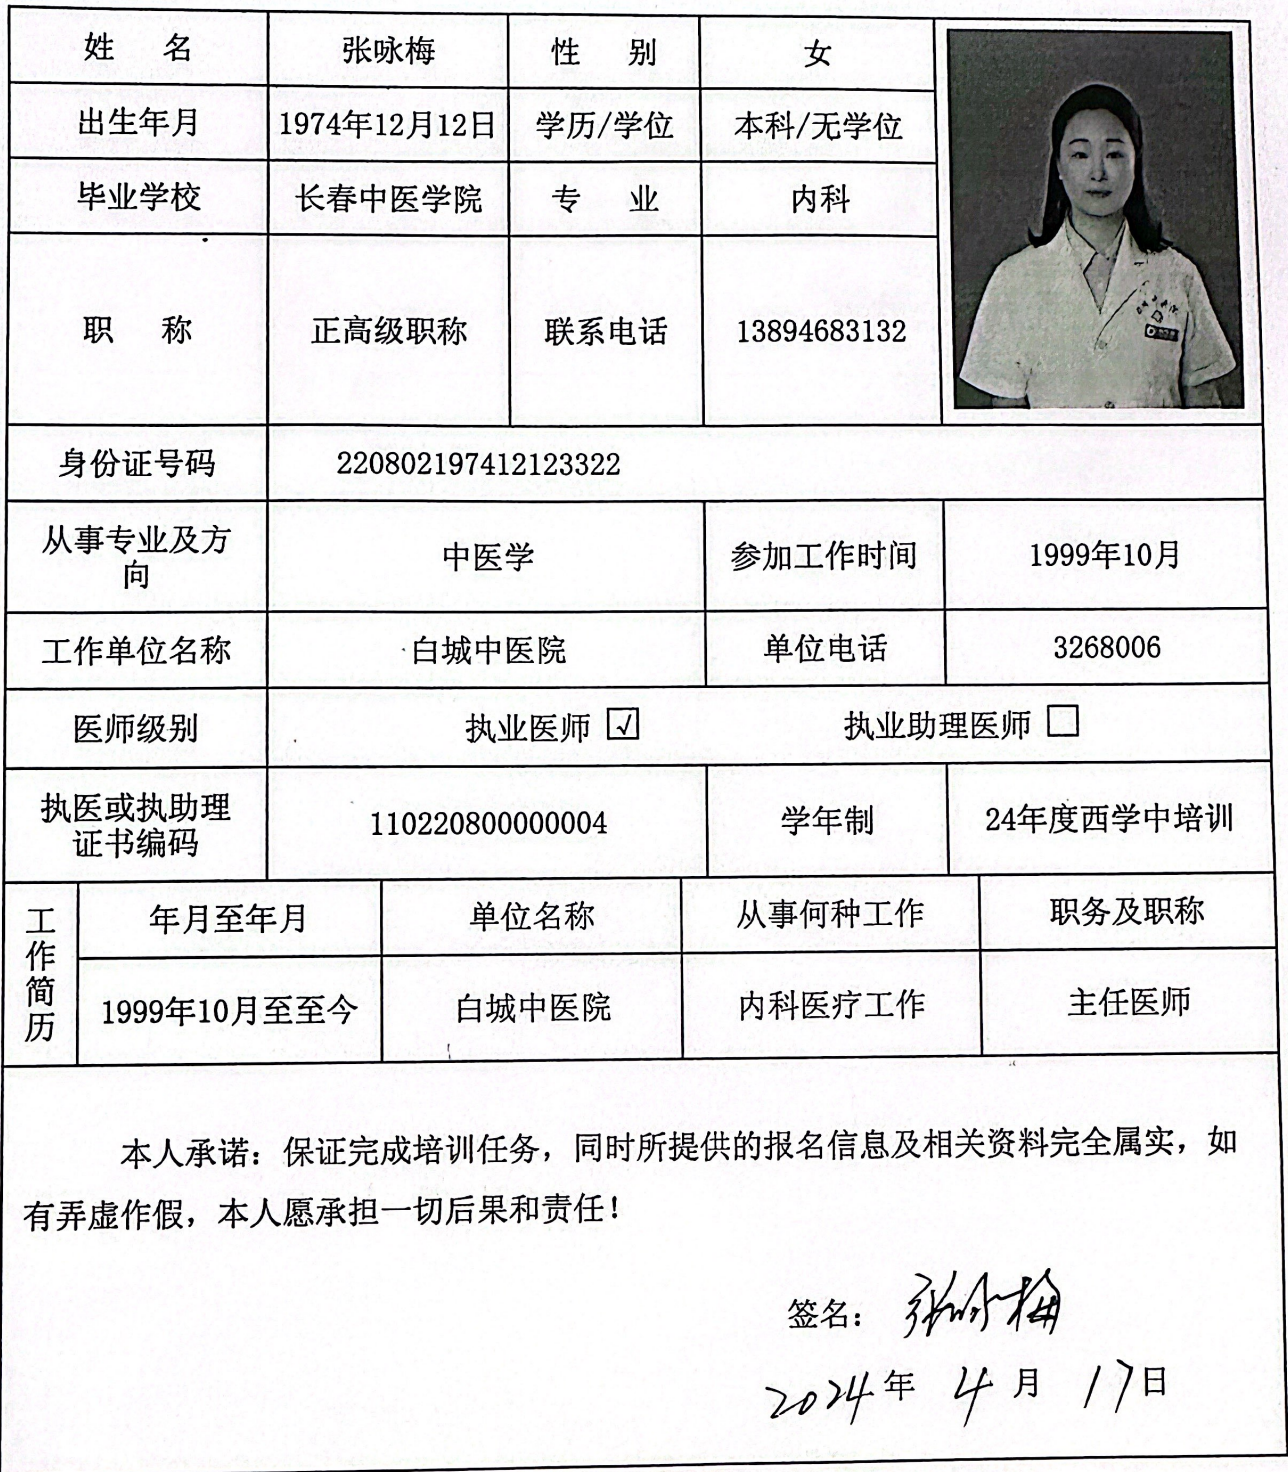 姓 名 张咏梅 性 别 女
出生年月 1974年12月12日 学历/学位 本科/无学位
毕业学校 长春中医学院 专 业 内科
职 称 正高级职称 联系电话 13894683132
身份证号码 220802197412123322
从事专业及方
向 中医学 参加工作时间 1999年10月
工作单位名称 白城中医院 单位电话 3268006
医师级别 执业医师 ☑ 执业助理医师 □
执医或执助理
证书编码 110220800000004 学年制 24年度西学中培训
工作简历 年月至年月 单位名称 从事何种工作 职务及职称
1999年10月至至今 白城中医院 内科医疗工作 主任医师
本人承诺：保证完成培训任务，同时所提供的报名信息及相关资料完全属实，如
有弄虚作假，本人愿承担一切后果和责任！
签名：张咏梅
2024年 4月 17日